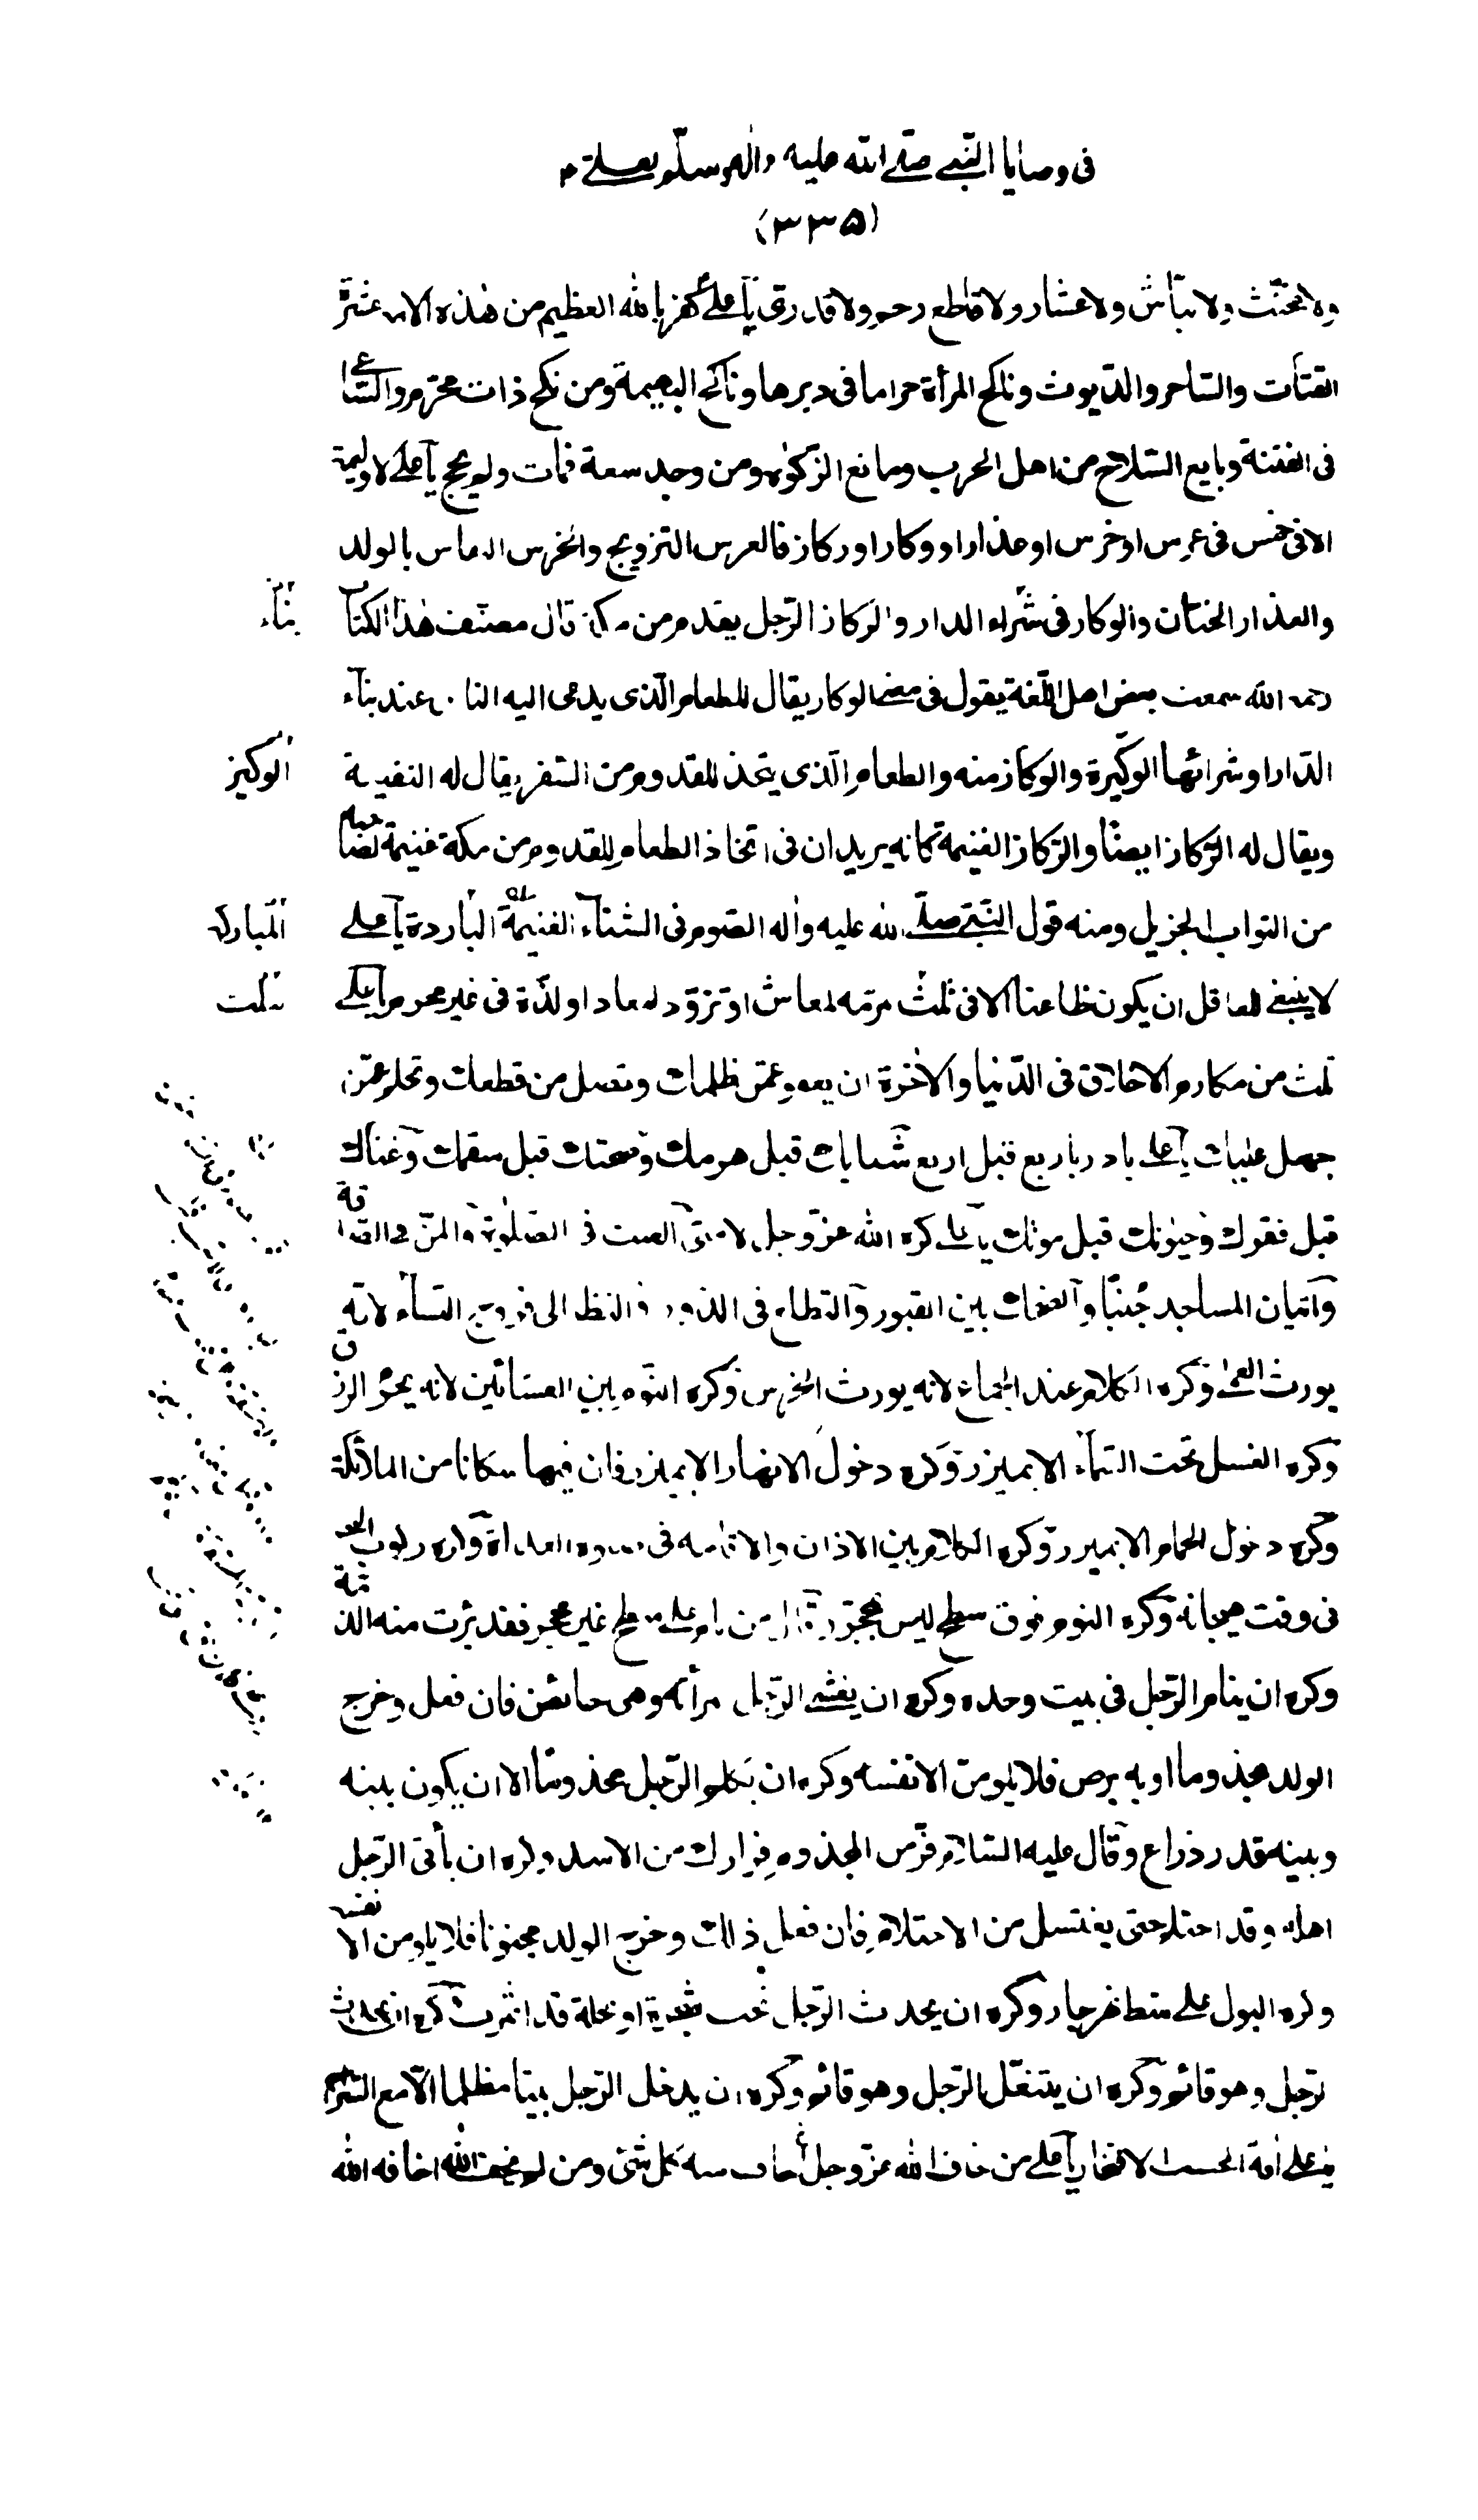 فى وصايا النبى صلى الله عليه واله وسلم لعلى م
(٣٣٥)
ولا مخنّث ولا نبّاش ولا عشار ولا قاطع رحم ولا قدرى يا على كفر بالله العظيم من هذه الامة عشرة
القتات والساحر والديوث وناكح المرأة حراما فى دبرها وناكح البهيمة ومن نكح ذات محرم والساعى
فى الفتنة وبايع السلاح من اهل الحرب ومانع الزكوة ومن وجد سعة فمات ولم يحج يا على لا وليمة
الا فى خمس فى عرس او خرس او عذار او وكار او ركاز فالعرس التزويج والخرس النفاس بالولد
والعذار الختان والوكار فى شراء الدار والركاز الرّجل يقدم من مكة قال مصنّف هذا الكتاب
بناء
رحمه الله سمعت بعض اهل اللّغة يقول فى معنى الوكار يقال للطعام الّذى يدعى اليه الناس عند بناء
الدّار او شرائها الوكيرة والوكاز منه والطعام الّذى يتخذ للقدوم من السّفر يقال له النقيعة
الوكيز
ويقال له الرّكاز ايضا والرّكاز الغنيمة كانه يريد ان فى اتخاذ الطعام للقدوم من مكة غنيمة لصاحبه
من الثواب الجزيل ومنه قول النّبىّ صلى الله عليه واله الصّوم فى الشتاء الغنيمة الباردة يا على
المباركة
لا ينبغى للعاقل ان يكون ظاعنا الا فى ثلث مرمّة لمعاش او تزوّد لمعاد او لذّة فى غير محرم يا على
ثلث
ثلث من مكارم الاخلاق فى الدّنيا والاخرة ان يعفو عمّن ظلمك وتصل من قطعك وتحلم عمّن
جهل عليك يا على بادر باربع قبل اربع شبابك قبل هرمك وصحتك قبل سقمك وغناك
قبل فقرك وحيوتك قبل موتك يا على كره الله عزّ وجل لامّتى العبث فى الصّلوة والمنّ فى الصّدقة
واتيان المساجد جنبًا والضحك بين القبور والتطلع فى الدّور والنظر الى فروج النّساء لانّه
يورث العمى وكره الكلام عند الجماع لانه يورث الخرس وكره النّوم بين العشائين لانه يحرم الرزق
وكره الغسل تحت السّماء الا بميزر وكره دخول الانهار الا بميزر فان فيها سكانا من الملائكة
وكره دخول الحمام الا بميزر وكره الكلام بين الاذان والاقامة فى صلوة الغداة وكره ركوب البحر
فى وقت هيجانه وكره النوم فوق سطح ليس بمحجّر وقال من نام على سطح غير محجر فقد برئت منه الذمّة
وكره ان ينام الرّجل فى بيت وحده وكره ان يغشى الرّجل امرأته وهى حائض فان فعل وخرج
الولد مجذوما او به برص فلا يلومنّ الا نفسه وكره ان يكلم الرّجل مجذومًا الا ان يكون بينه
وبينه قدر ذراع وقال عليه السّلام فرّ من المجذوم فرارك من الاسد وكره ان يأتى الرّجل
اهله وقد احتلم حتى يغتسل من الاحتلام فان فعل ذلك وخرج الولد مجنونا فلا يلومن الا نفسه
وكره البول على شط نهر جار وكره ان يحدث الرّجل تحت شجرة او نخلة قد اثمرت وكره ان يحدث
الرّجل وهو قائم وكره ان يتنعّل الرّجل وهو قائم وكره ان يدخل الرّجل بيتا مظلما الّا مع السّراج
يا على افة الحسب الافتخار يا على من خاف الله عزّ وجل اخاف منه كل شئ ومن لم يخف الله اخافه الله